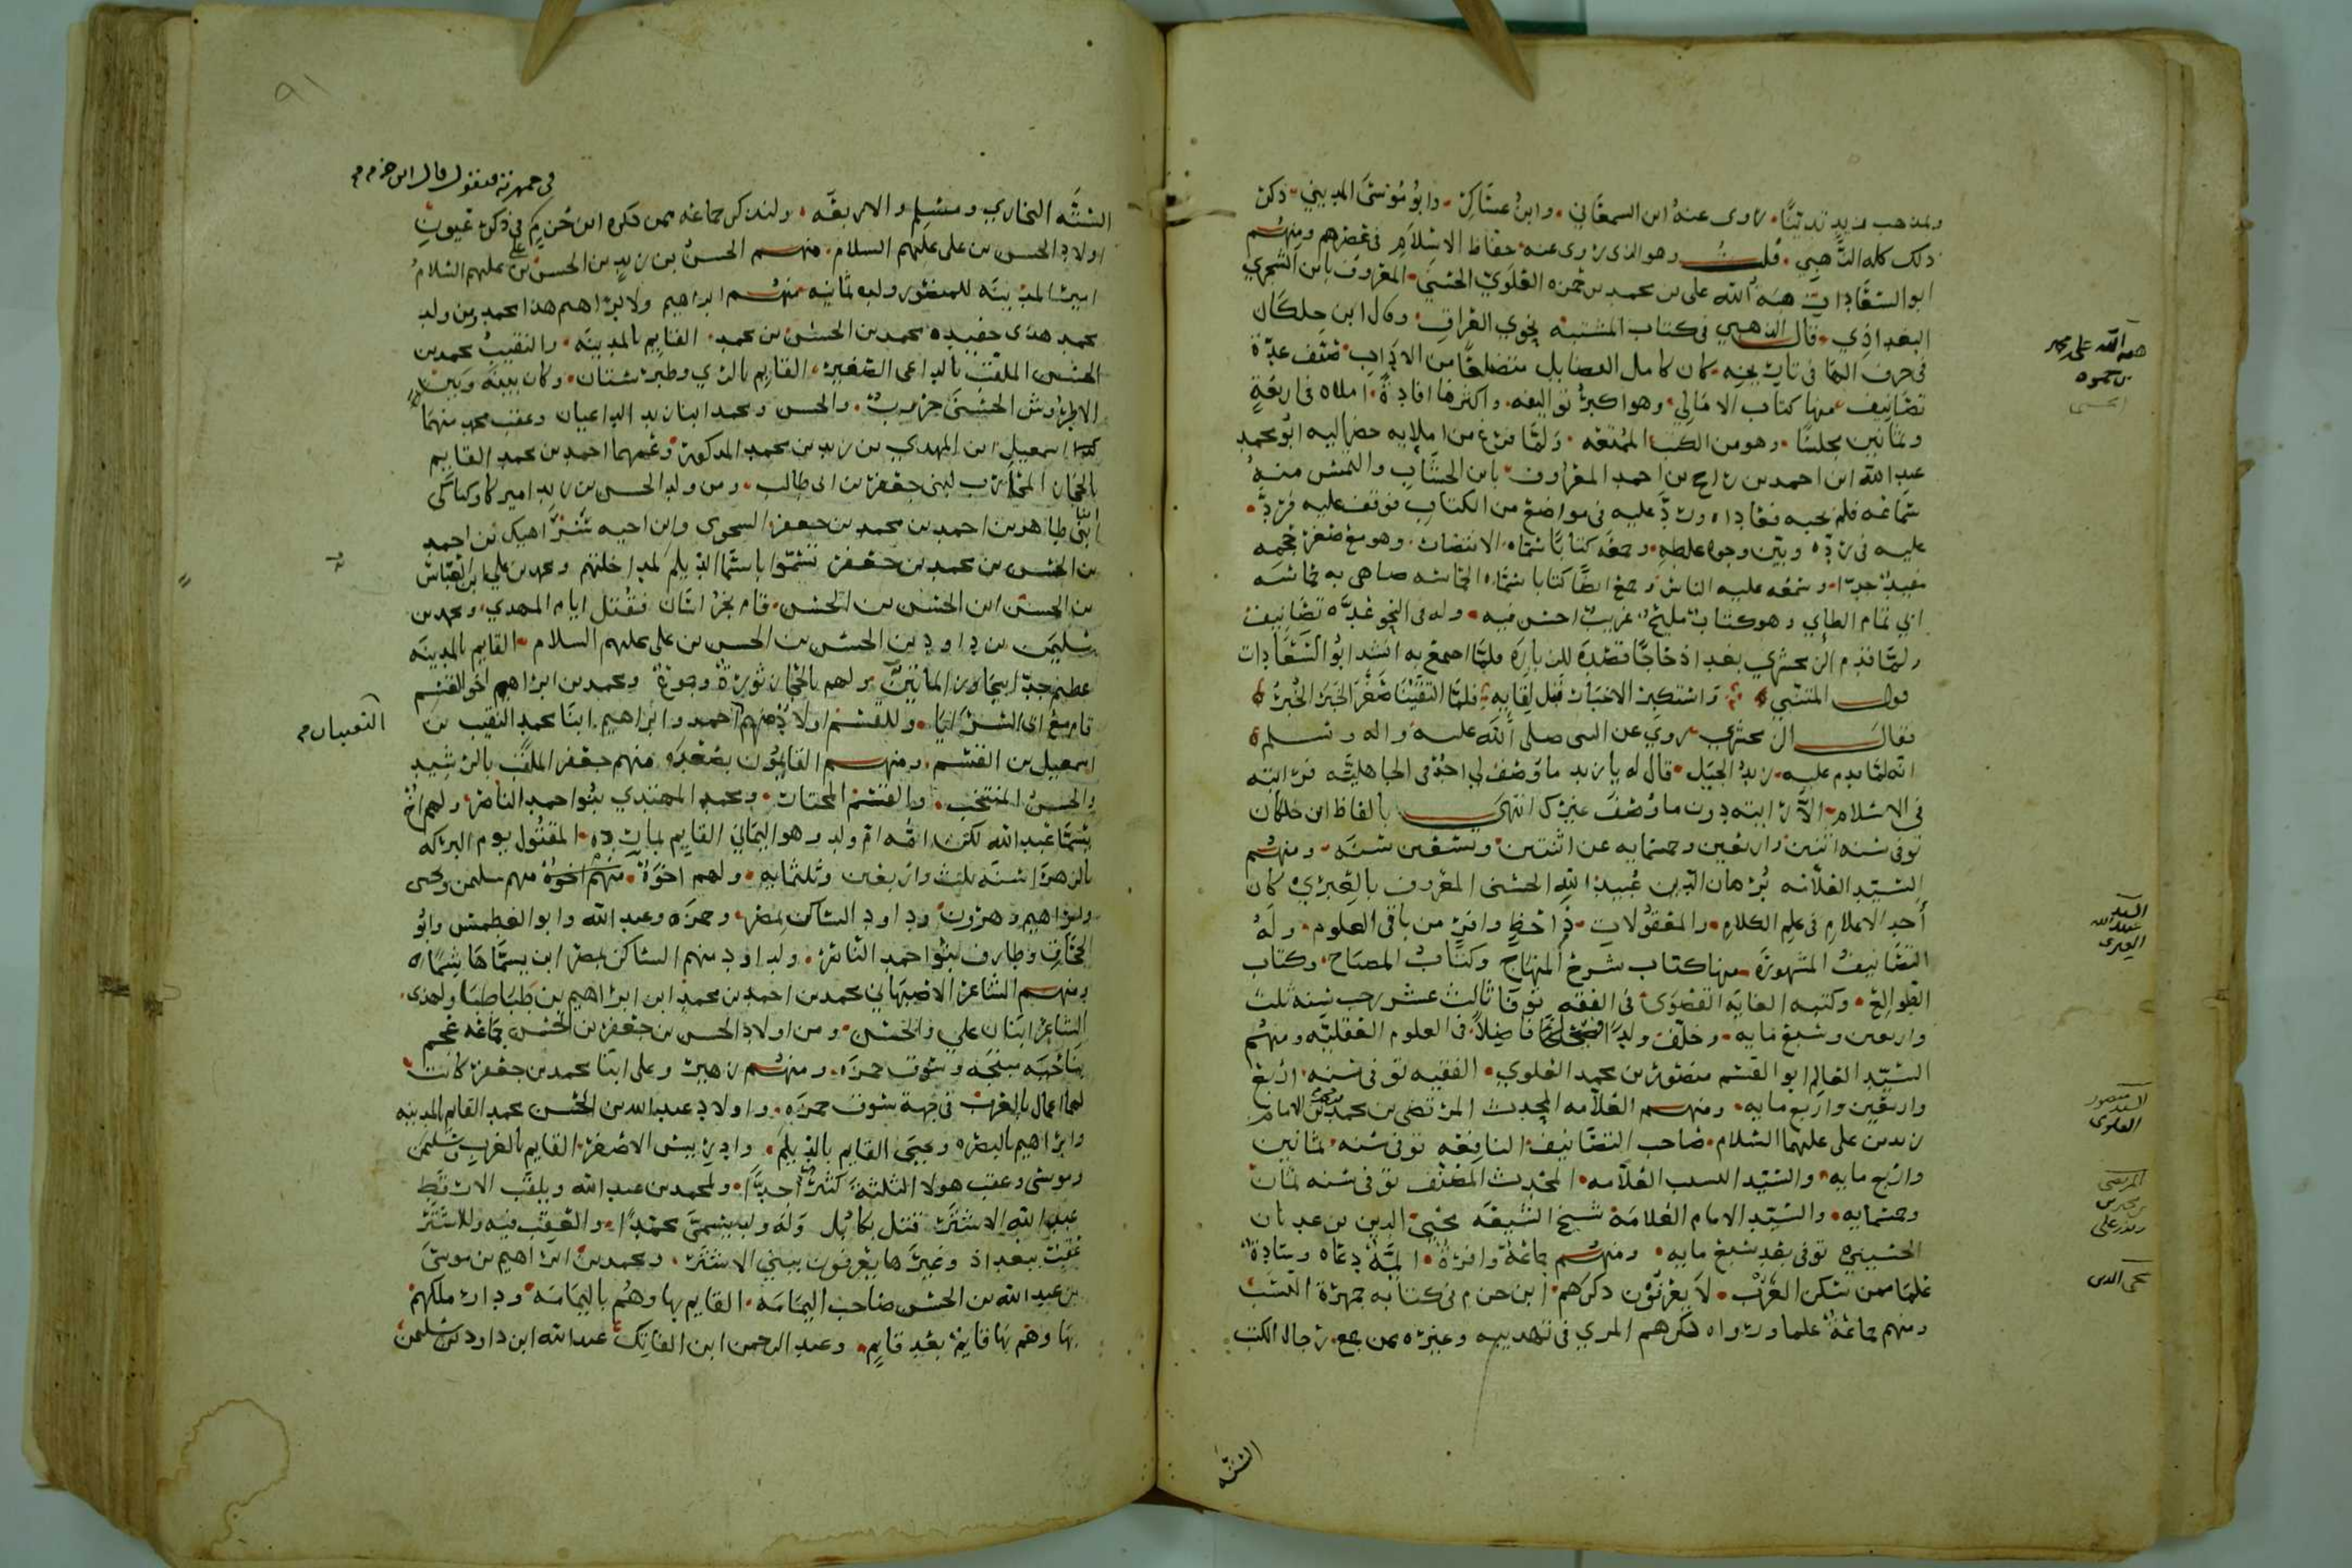 ولمذهب زيد تدينًا. روى عنه ابن السمعاني. وابن عساكر. وابو موسى المديني. ذكر
ذلك كله الذهبي. قلت وهو الذي روى عنه حفاظ الاسلام في عصرهم ومنهم
ابو السعادات هبة الله على بن محمد بن حمزه العلوي الحسني. المعروف بابن الشجري
البغداذي. قال الذهبي في كتاب المشتبه نحوي العراق. وقال ابن خلكان
في حرف الها في تاريخه. كان كامل الفضايل متضلعًا من الاداب. صنف عدة
تصانيف منها كتاب الامالي. وهو اكبر تواليفه. واكثرها افادة. املاه في اربعة
وثمانين مجلسًا. وهو من الكتب الممتعه. ولما فرغ من املايه حضر اليه ابو محمد
عبد الله ابن احمد بن احمد المعروف بابن الخشاب والتمس منه
سماعه فلم يجبه فعاداه ورد عليه في مواضع من الكتاب فوقف عليه فرد.
عليه في رده وبين وجوه غلطه. وجمعه كتابًا سماه الانتصار. وهو مع صغر حجمه
مفيد جدا. وسمعه عليه الناس وجمع ايضًا كتابا سماه الحماسه ضاهى به حماسه
ابي تمام الطائي وهو كتاب مليح غريب احسن فيه. وله في النحو عدة تصانيف
ولما قدم الزمخشري بغداد حاجًا قصده للزيارة فلما اجتمع به انشد ابو السعادات
قول المتنبي. واستكبر الاخبار قبل لقايه. فلما التقينا صغر الخبر الخبر
فقال الزمخشري روي عن النبي صلى الله عليه واله وسلم
انه لما قدم عليه زيد الخيل. قال له يا زيد ما وصف لي احد في الجاهلية فرايته
في الاسلام. الا رايته دون ما وصف غيرك انتهى بالفاظ ابن خلكان
توفي سنه اثنين واربعين وخمسمايه عن اثنتين وتسعين سنه. ومنهم
السيد العلامه برهان الدين عبيد الله الحسني المعروف بالعبري كان
أحد الاعلام في علم الكلام. والمعقولات. ذا حظ وافر من باقي العلوم. وله
التصانيف المشهورة. منها كتاب شرح المنهاج وكتاب المصباح. وكتاب
الطوالع. وكتبه الغايه القصوى في الفقه توفا ثالث عشر رجب سنه ثلث
واربعين وسبع مايه. وخلف ولدا فاضلًا. في العلوم العقليه ومنهم
السيد العالم ابو القسم منصور بن محمد العلوي. الفقيه توفي سنه اربع
واربعين واربع مايه. ومنهم العلامه المحدث المرتضى بن محمد بن الامام
زيد بن علي عليهما السلام. صاحب التصانيف النافعه توفي سنه ثمانين
واربع مايه. والسيد النسب العلامه. المحدث المصنف توفي سنه ثمان
وخمسمايه. والسيد الامام العلامة شيخ الشيعه محيي الدين بن عدنان
الحسيني توفي بعد سبع مايه. ومنهم جماعة وافرة. ائمة دعاه وسادة
علما ممن سكن الغرب. لا يعرفون ذكرهم. ابن حزم في كتابه جمهرة النسب
ومنهم جماعة علما ورواه ذكرهم المزي في تهذيبه وغيره ممن جمع. رجال الكتب
الستة
هبه الله على محمد
بن حمزه
الحسنى
السيد
عبيد الله
العبرى
السيد منصور
العلوى
المرتضى
بن محمد بن
زيد بن على
محى الدين
٩١
في جمهرته فنقول قال ابن حزم
الستة البخاري ومسلم والاربعه. ولنذكر جماعه ممن ذكره ابن حزم في ذكر عيون
اولاد الحسن بن على عليهم السلام. منهم الحسن بن زيد بن الحسن بن على عليهم السلام
امير المدينه للمنصور وله ثمانيه منهم ابراهيم ولابراهيم هذا محمد ومن ولد
محمد هذى حفيده محمد بن الحسن بن محمد. القايم بالمدينه. والنقيب محمد بن
الحسن الملقب بالداعى الصغير. القايم بالري وطبرستان. وكان بينه وبين
الاطروش الحسني حروب. والحسن ومحمد ابنا زيد الداعيان وعقب محمد منهما
اسمعيل ابن المهدي بن زيد بن محمد المذكور وعمهما احمد بن محمد القايم
بالحجاز المحارب لبني جعفر بن ابى طالب. ومن ولد الحسن بن زيد اميركا وكباكى
ابنى طاهر بن احمد بن محمد بن جعفر السحوى وابن اخيه شراهيك بن احمد
بن الحسن بن محمد بن جعفر تسموا باسما الديلم لمداخلتهم ومحمد بن علي بن العباس
بن الحسن ابن الحسن بن الحسن. قام بخراسان فقتل ايام المهدي. ومحمد بن
سليمن بن داود بن الحسن بن الحسن بن على عليهم السلام. القايم بالمدينه
عظيم جدا يتجاوز المائتين ولهم بالحجاز ثورة وجموع ومحمد بن ابراهيم اخو القسم
قام مع ابى السرايا. وللقسم اولاد منهم احمد وابراهيم. ابنا محمد النقيب بن
النقيبان
اسمعيل بن القسم. ومنهم القايمون بصعده منهم جعفر الملقب بالرشيد
والحسن المنتخب. والقسم المختار. ومحمد المهتدي بنوا احمد الناصر ولهم اخ
يسما عبد الله لكن امه ام ولد وهو اليماني القايم بمارده. المقتول يوم البركه
بالزهرا سنة ثلث واربعين وثلثمايه. ولهم اخوة. منهم اخوة منهم سليمن ويحيى
وابراهيم وهرون وداود الساكن بمصر. وحمزه وعبد الله وابو الغطمش وابو
الجحاف وطارف بنوا احمد الناصر. ولداود منهم الساكن بمصر ابن يسما هاشما
ومنهم الشاعر الاصبهاني محمد بن احمد بن محمد ابن ابراهيم بن طباطبا ولهذى
الشاعر ابنان علي والحسن. ومن اولاد الحسن بن جعفر بن الحسن جماعه غنم
بناحيه متيجه وسوق حمزه. ومنهم زهير وعلى ابنا محمد بن جعفر كانت
لهما اعمال بالغرب في جهة سوق حمزه. واولاد عبد الله بن الحسن محمد القايم بالمدينه
وابراهيم بالبصره ويحيى القايم بالديلم. وادريس الاصغر. القايم بالغرب وسليمن
وموسى وعقب هولا الثلثة كثير جدا. ولمحمد بن عبد الله ويلقب الارقط
عبد الله الاشتر قتل بكابل وله ولد يسمى محمدا. والعقب فيه وللاشتر
عقب ببغداذ وغيرها يعرفون ببني الاشتر. ومحمد بن ابراهيم بن موسى
بن عبد الله بن الحسن صاحب اليمامه. القايم بها وهم باليمامه ودار ملكهم
بها وهم بها قايم بعد قايم. وعبد الرحمن ابن الفاتك عبد الله ابن داود بن سليمن